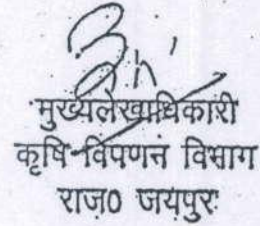 मुख्यलेखाधिकारी
कृषि विपणन विभाग
राज0 जयपुर